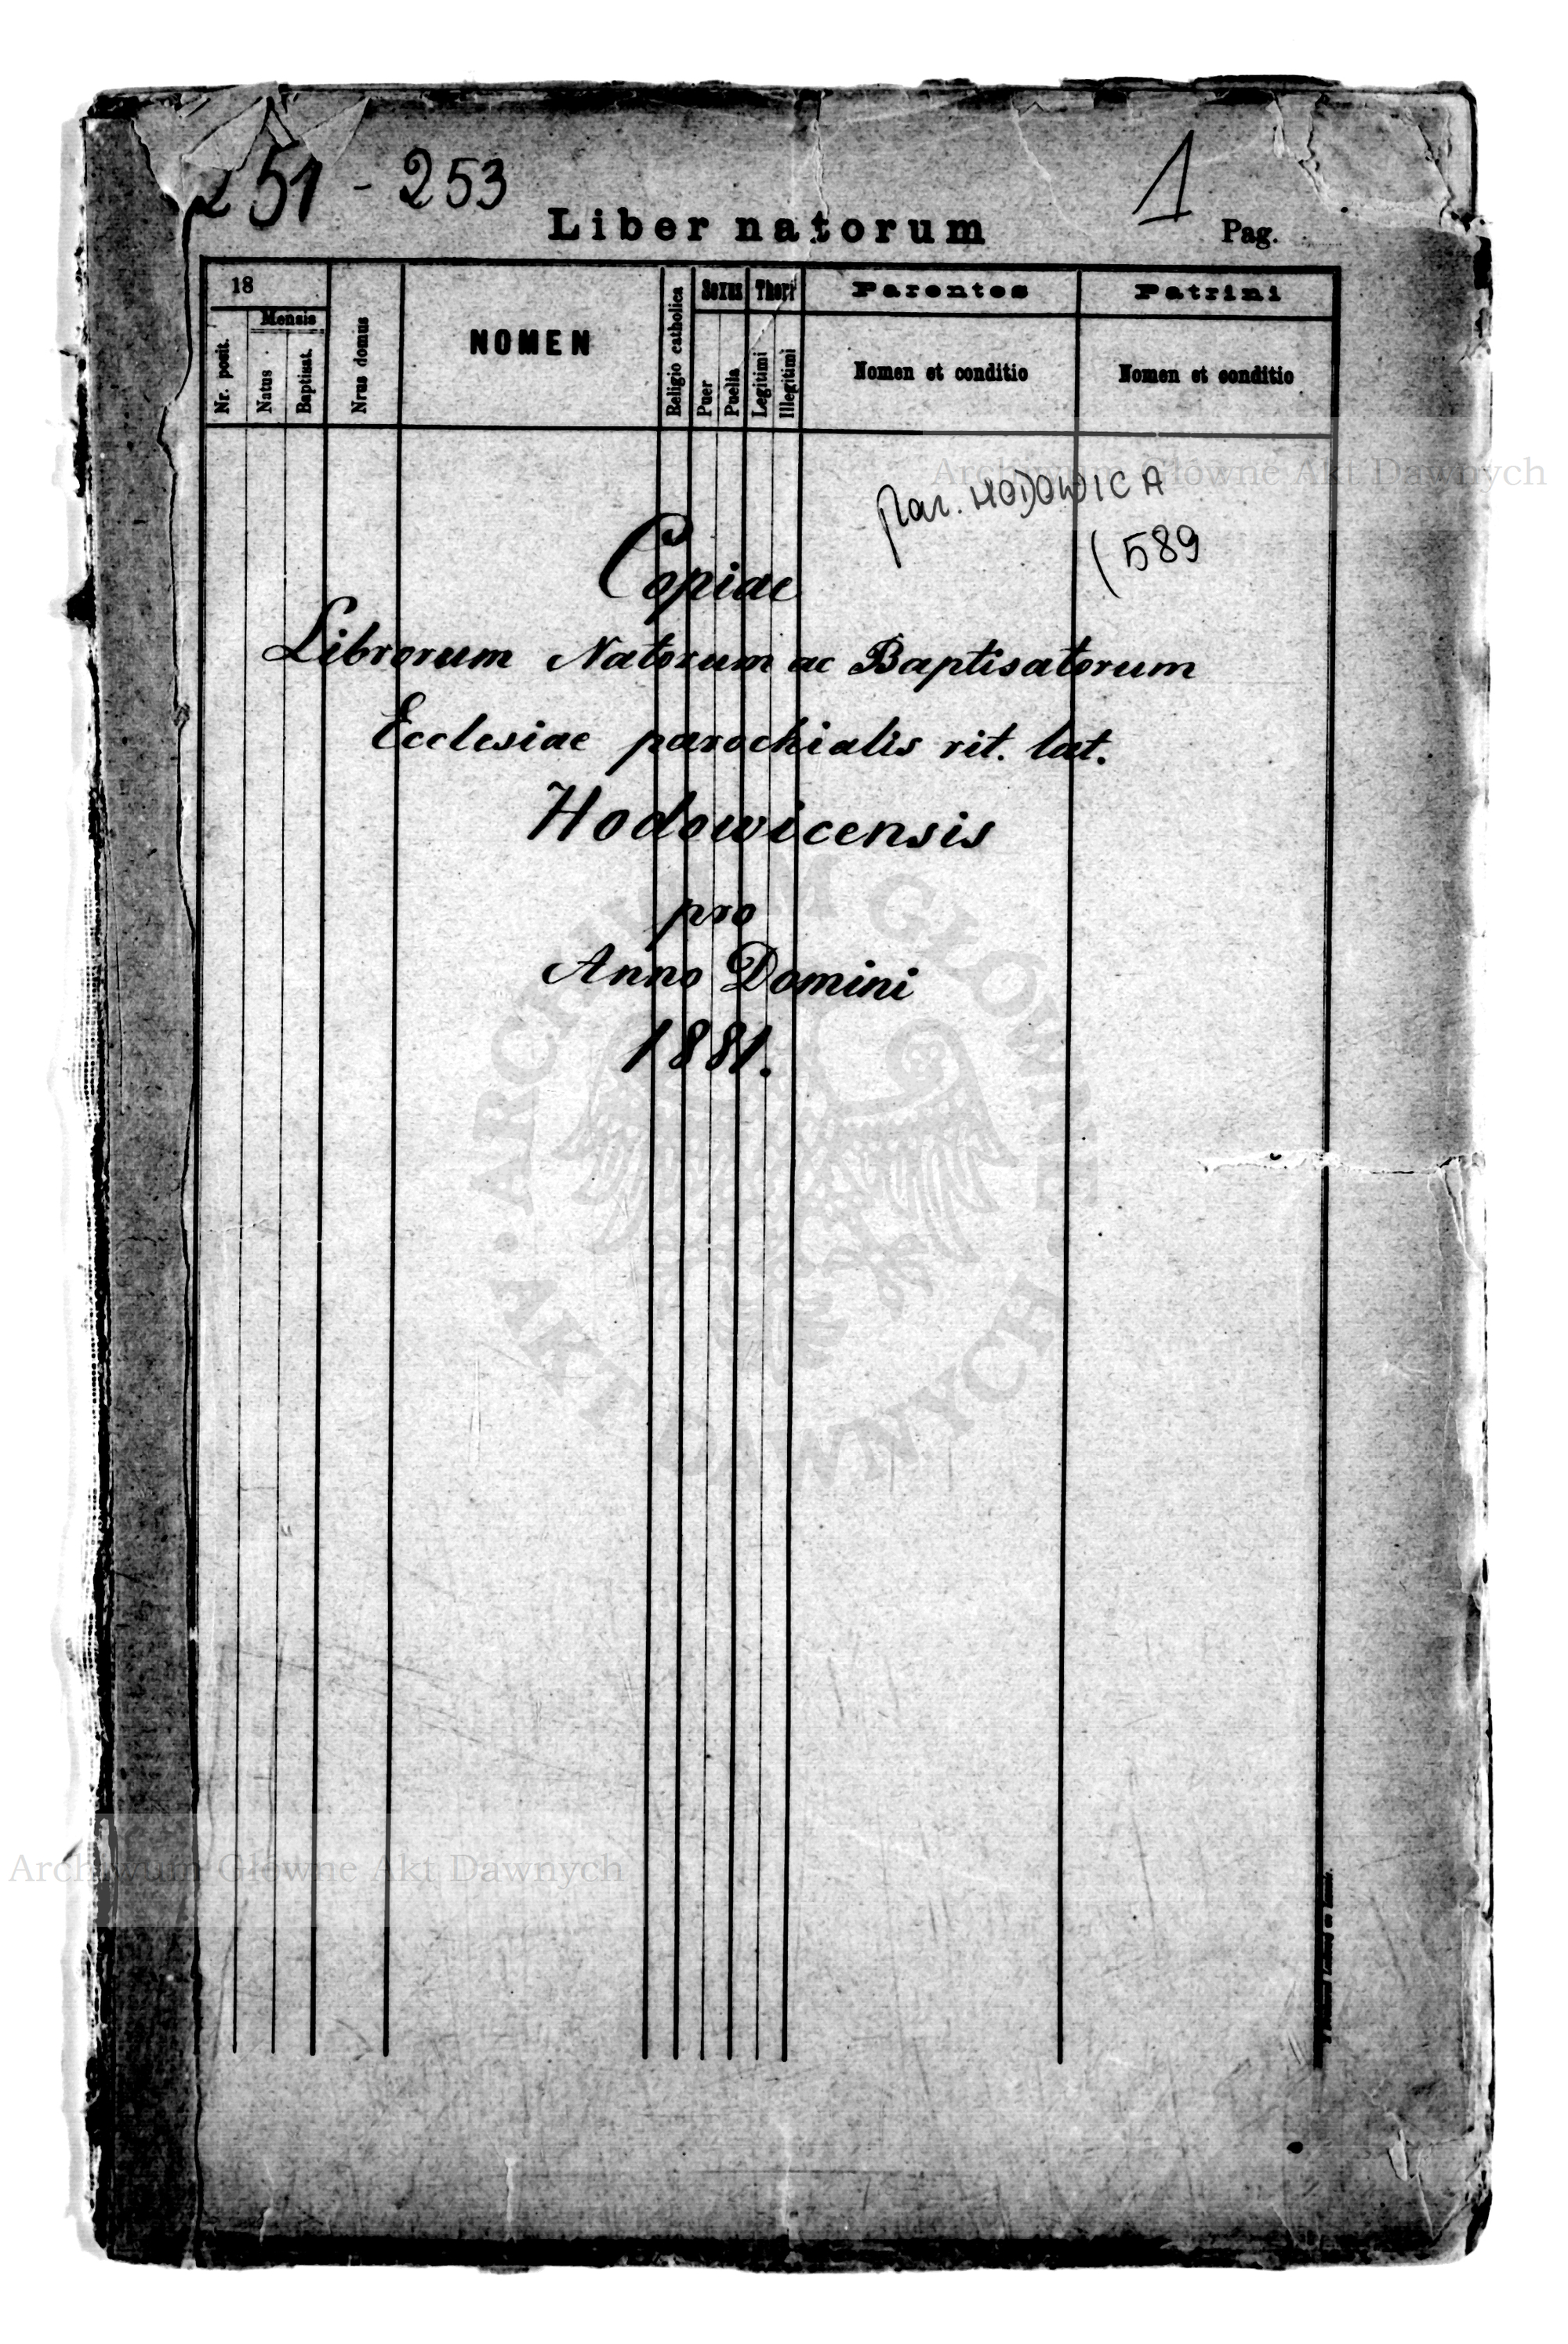 251 - 253
1
Liber natorum
Pag.
18
Mensis
Nr. posit.
Natus
Baptisat.
Nrus domus
NOMEN
Religio catholica
Sexus
Puer
Puella
Thori
Legitimi
Illegitimi
Parentes
Nomen et conditio
Patrini
Nomen et conditio
Archiwum Główne Akt Dawnych
par. HODOWICA
(589
Copiae
Librorum Natorum ac Baptisatorum
Ecclesiae parochialis rit. lat.
Hodowicensis
pro
Anno Domini
1881.
ARCHIWUM GŁÓWNE
AKT DAWNYCH
Archiwum Główne Akt Dawnych